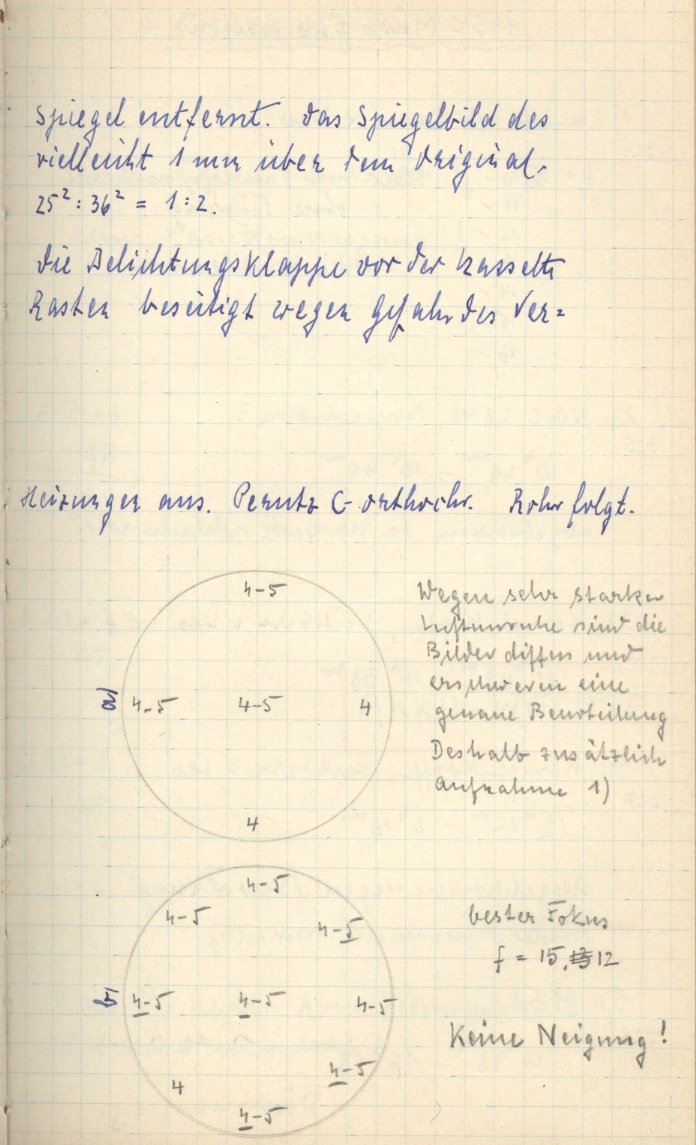 Spiegel entfernt. Das Spiegelbild des
vielleicht 1 mm über dem Original.
25² : 36² = 1 : 2.
Die Belichtungsklappe vor der Kassette
Kasten beseitigt wegen Gefahr des Ver=
Heizungen aus. Perutz C-orthochr. Rohr folgt.
4-5
a) 4-5 4-5 4
4
Wegen sehr starker
Luftunruhe sind die
Bilder diffus und
erschweren eine
genaue Beurteilung
Deshalb zusätzlich
Aufnahme 1)
4-5
4-5 4-5
b) 4-5 4-5 4-5
4-5
4
4-5
bester Fokus
f = 15,12
Keine Neigung!